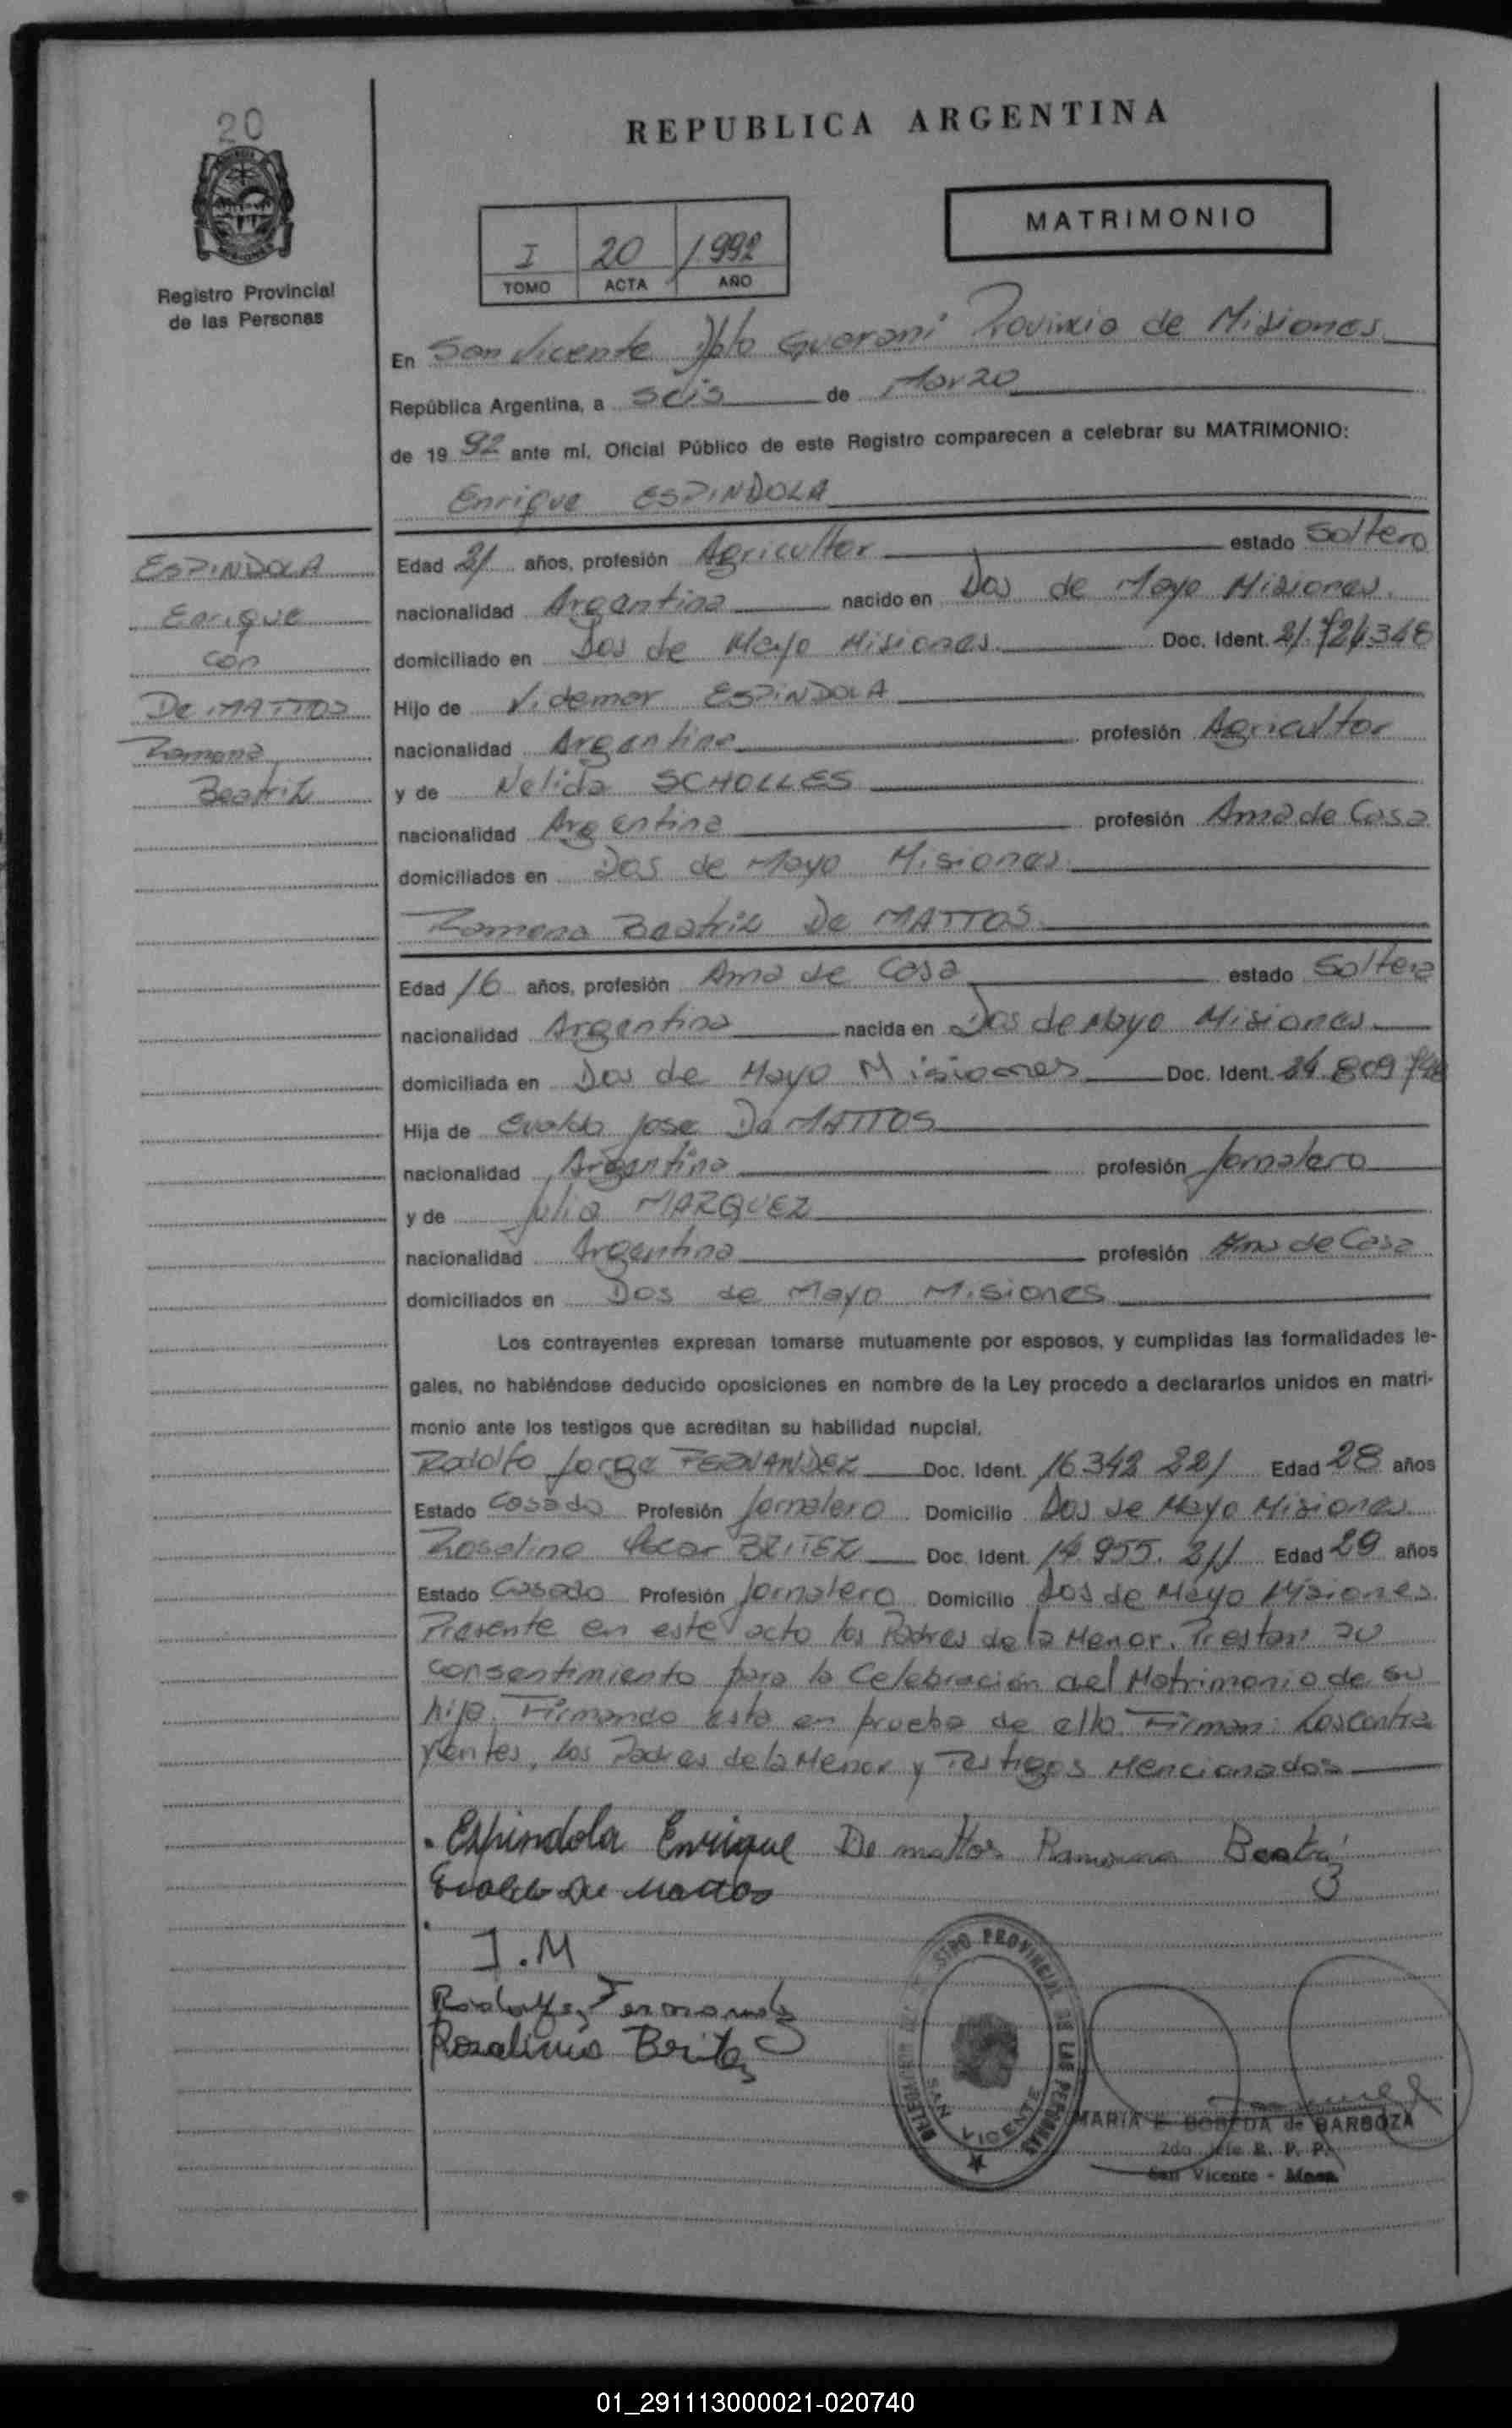 20
REPUBLICA ARGENTINA
MATRIMONIO
I 20 1992
TOMO ACTA AÑO
Registro Provincial
de las Personas
En San Vicente Dpto Guarani Provincia de Misiones
República Argentina, a seis de Marzo
de 19 92 ante mí, Oficial Público de este Registro comparecen a celebrar su MATRIMONIO:
Enrique ESPINDOLA
ESPINDOLA
Enrique
con
De MATTOS
Ramona
Beatriz
Edad 21 años, profesión Agricultor estado Soltero
nacionalidad Argentina nacido en Dos de Mayo Misiones.
domiciliado en Dos de Mayo Misiones. Doc. Ident. 21.724348
Hijo de Videmar ESPINDOLA
nacionalidad Argentina profesión Agricultor
y de Nelida SCHOLLES
nacionalidad Argentina profesión Ama de Casa
domiciliados en Dos de Mayo Misiones
Ramona Beatriz De MATTOS
Edad 16 años, profesión Ama de Casa estado Soltera
nacionalidad Argentina nacida en Dos de Mayo Misiones
domiciliada en Dos de Mayo Misiones Doc. Ident. 24 809
Hija de Evaldo Jose De MATTOS
nacionalidad Argentina profesión Jornalero
y de Julia MARQUEZ
nacionalidad Argentina profesión Ama de Casa
domiciliados en Dos de Mayo Misiones
Los contrayentes expresan tomarse mutuamente por esposos, y cumplidas las formalidades le-
gales, no habiéndose deducido oposiciones en nombre de la Ley procedo a declararlos unidos en matri-
monio ante los testigos que acreditan su habilidad nupcial.
Rodolfo Jorge FERNANDEZ Doc. Ident. 16.342 221 Edad 28 años
Estado Casado Profesión Jornalero Domicilio Dos de Mayo Misiones
Rosalino Oscar BRITEZ Doc. Ident. 14.955.211 Edad 29 años
Estado Casado Profesión Jornalero Domicilio Dos de Mayo Misiones
Presente en este acto los Padres de la Menor. Prestan su
consentimiento para la Celebración del Matrimonio de su
hija. Firmando esta en prueba de ello. Firman: Los contra
yentes, Los Padres de la Menor y Testigos Mencionados
Espindola Enrique De mattos Ramona Beatriz
Evaldo De Mattos
J.M
Rodolfo Fernandez
Rosalino Britez
REGISTRO PROVINCIAL DE LAS PERSONAS
DELEGACION
SAN VICENTE
MARIA E. BOBEDA de BARBOZA
2do Jefe R. P. P.
San Vicente - Mnes.
01_291113000021-020740